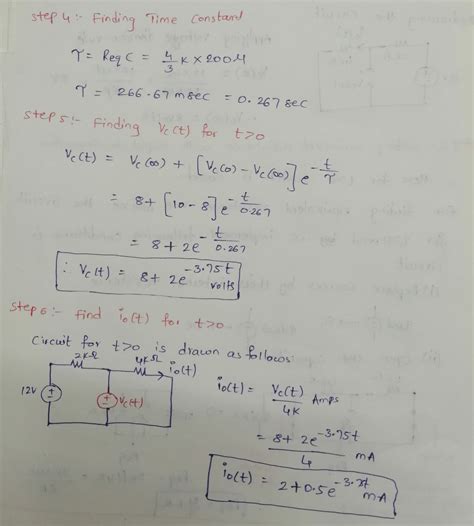 Step 4:- Finding Time Constant
τ = Req C = 4/3 K × 200 μ
τ = 266.67 msec = 0.267 sec
Step 5:- Finding Vc(t) for t>0
Vc(t) = Vc(∞) + [Vc(0) - Vc(∞)] e^-t/τ
= 8 + [10 - 8] e^-t/0.267
= 8 + 2e^-t/0.267
∴ Vc(t) = 8 + 2e^-3.75t volts
Step 6:- Find io(t) for t>0
Circuit for t>0 is drawn as follows:
2kΩ 4kΩ io(t)
12V Vc(t)
io(t) = Vc(t)/4K Amps
= 8 + 2e^-3.75t/4 mA
io(t) = 2 + 0.5e^-3.75t mA